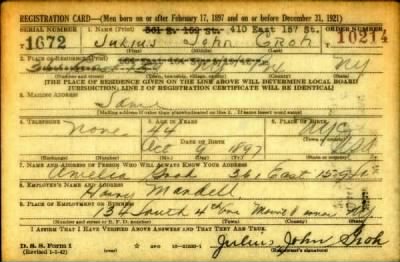 REGISTRATION CARD—(Men born on or after February 17, 1897 and on or before December 31, 1921)
SERIAL NUMBER 1. NAME (Print) 410 East 157 St. ORDER NUMBER
1672 Julius John Groh 10214
2. PLACE OF RESIDENCE (Print)
NY
(Number and street) (Town, township, village, or city) (County) (State)
[THE PLACE OF RESIDENCE GIVEN ON THE LINE ABOVE WILL DETERMINE LOCAL BOARD
JURISDICTION; LINE 2 OF REGISTRATION CERTIFICATE WILL BE IDENTICAL]
3. MAILING ADDRESS
Same
(Mailing address if other than place indicated on line 2. If same insert word same)
4. TELEPHONE 5. AGE IN YEARS 6. PLACE OF BIRTH
None 44 NYC
DATE OF BIRTH
Oct 9 1897
7. NAME AND ADDRESS OF PERSON WHO WILL ALWAYS KNOW YOUR ADDRESS
Amelia Groh 361 East 159 St
8. EMPLOYER'S NAME AND ADDRESS
Harry Mandell
9. PLACE OF EMPLOYMENT OR BUSINESS
134 South 4th Ave Mount Vernon NY
(Number and street or R. F. D. number) (Town) (County) (State)
I AFFIRM THAT I HAVE VERIFIED ABOVE ANSWERS AND THAT THEY ARE TRUE.
D. S. S. Form 1
(Revised 1-1-42) Julius John Groh